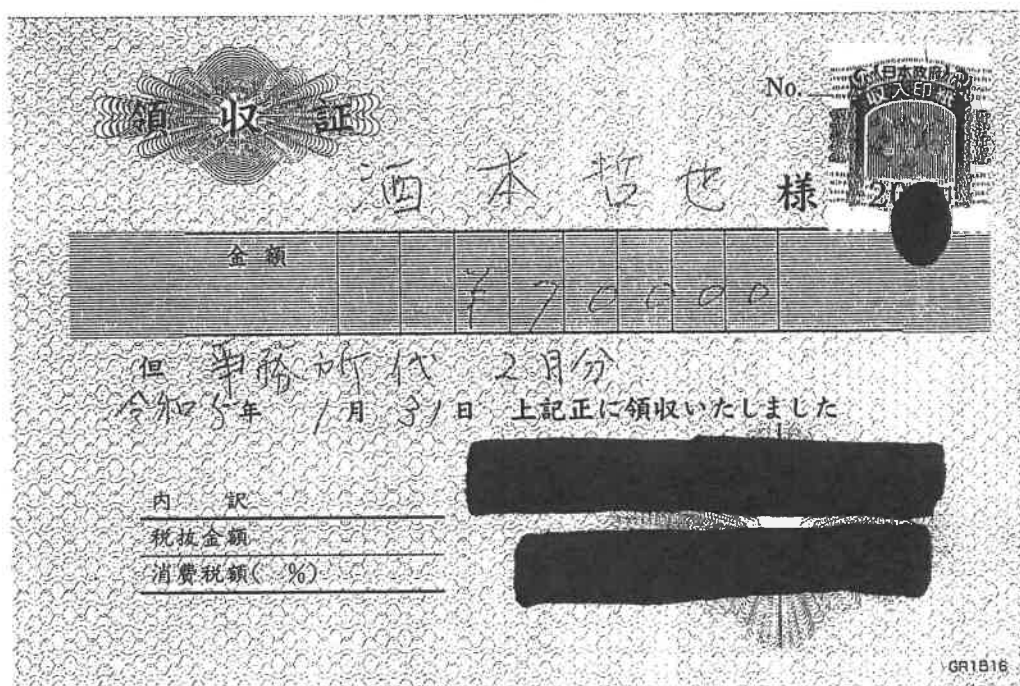 領収証
No.
日本政府
収入印紙
酒本哲也 様
金額
¥70000
但 事務所代 2月分
令和5年 1月31日 上記正に領収いたしました
内 訳
税抜金額
消費税額( %)
GR1B16